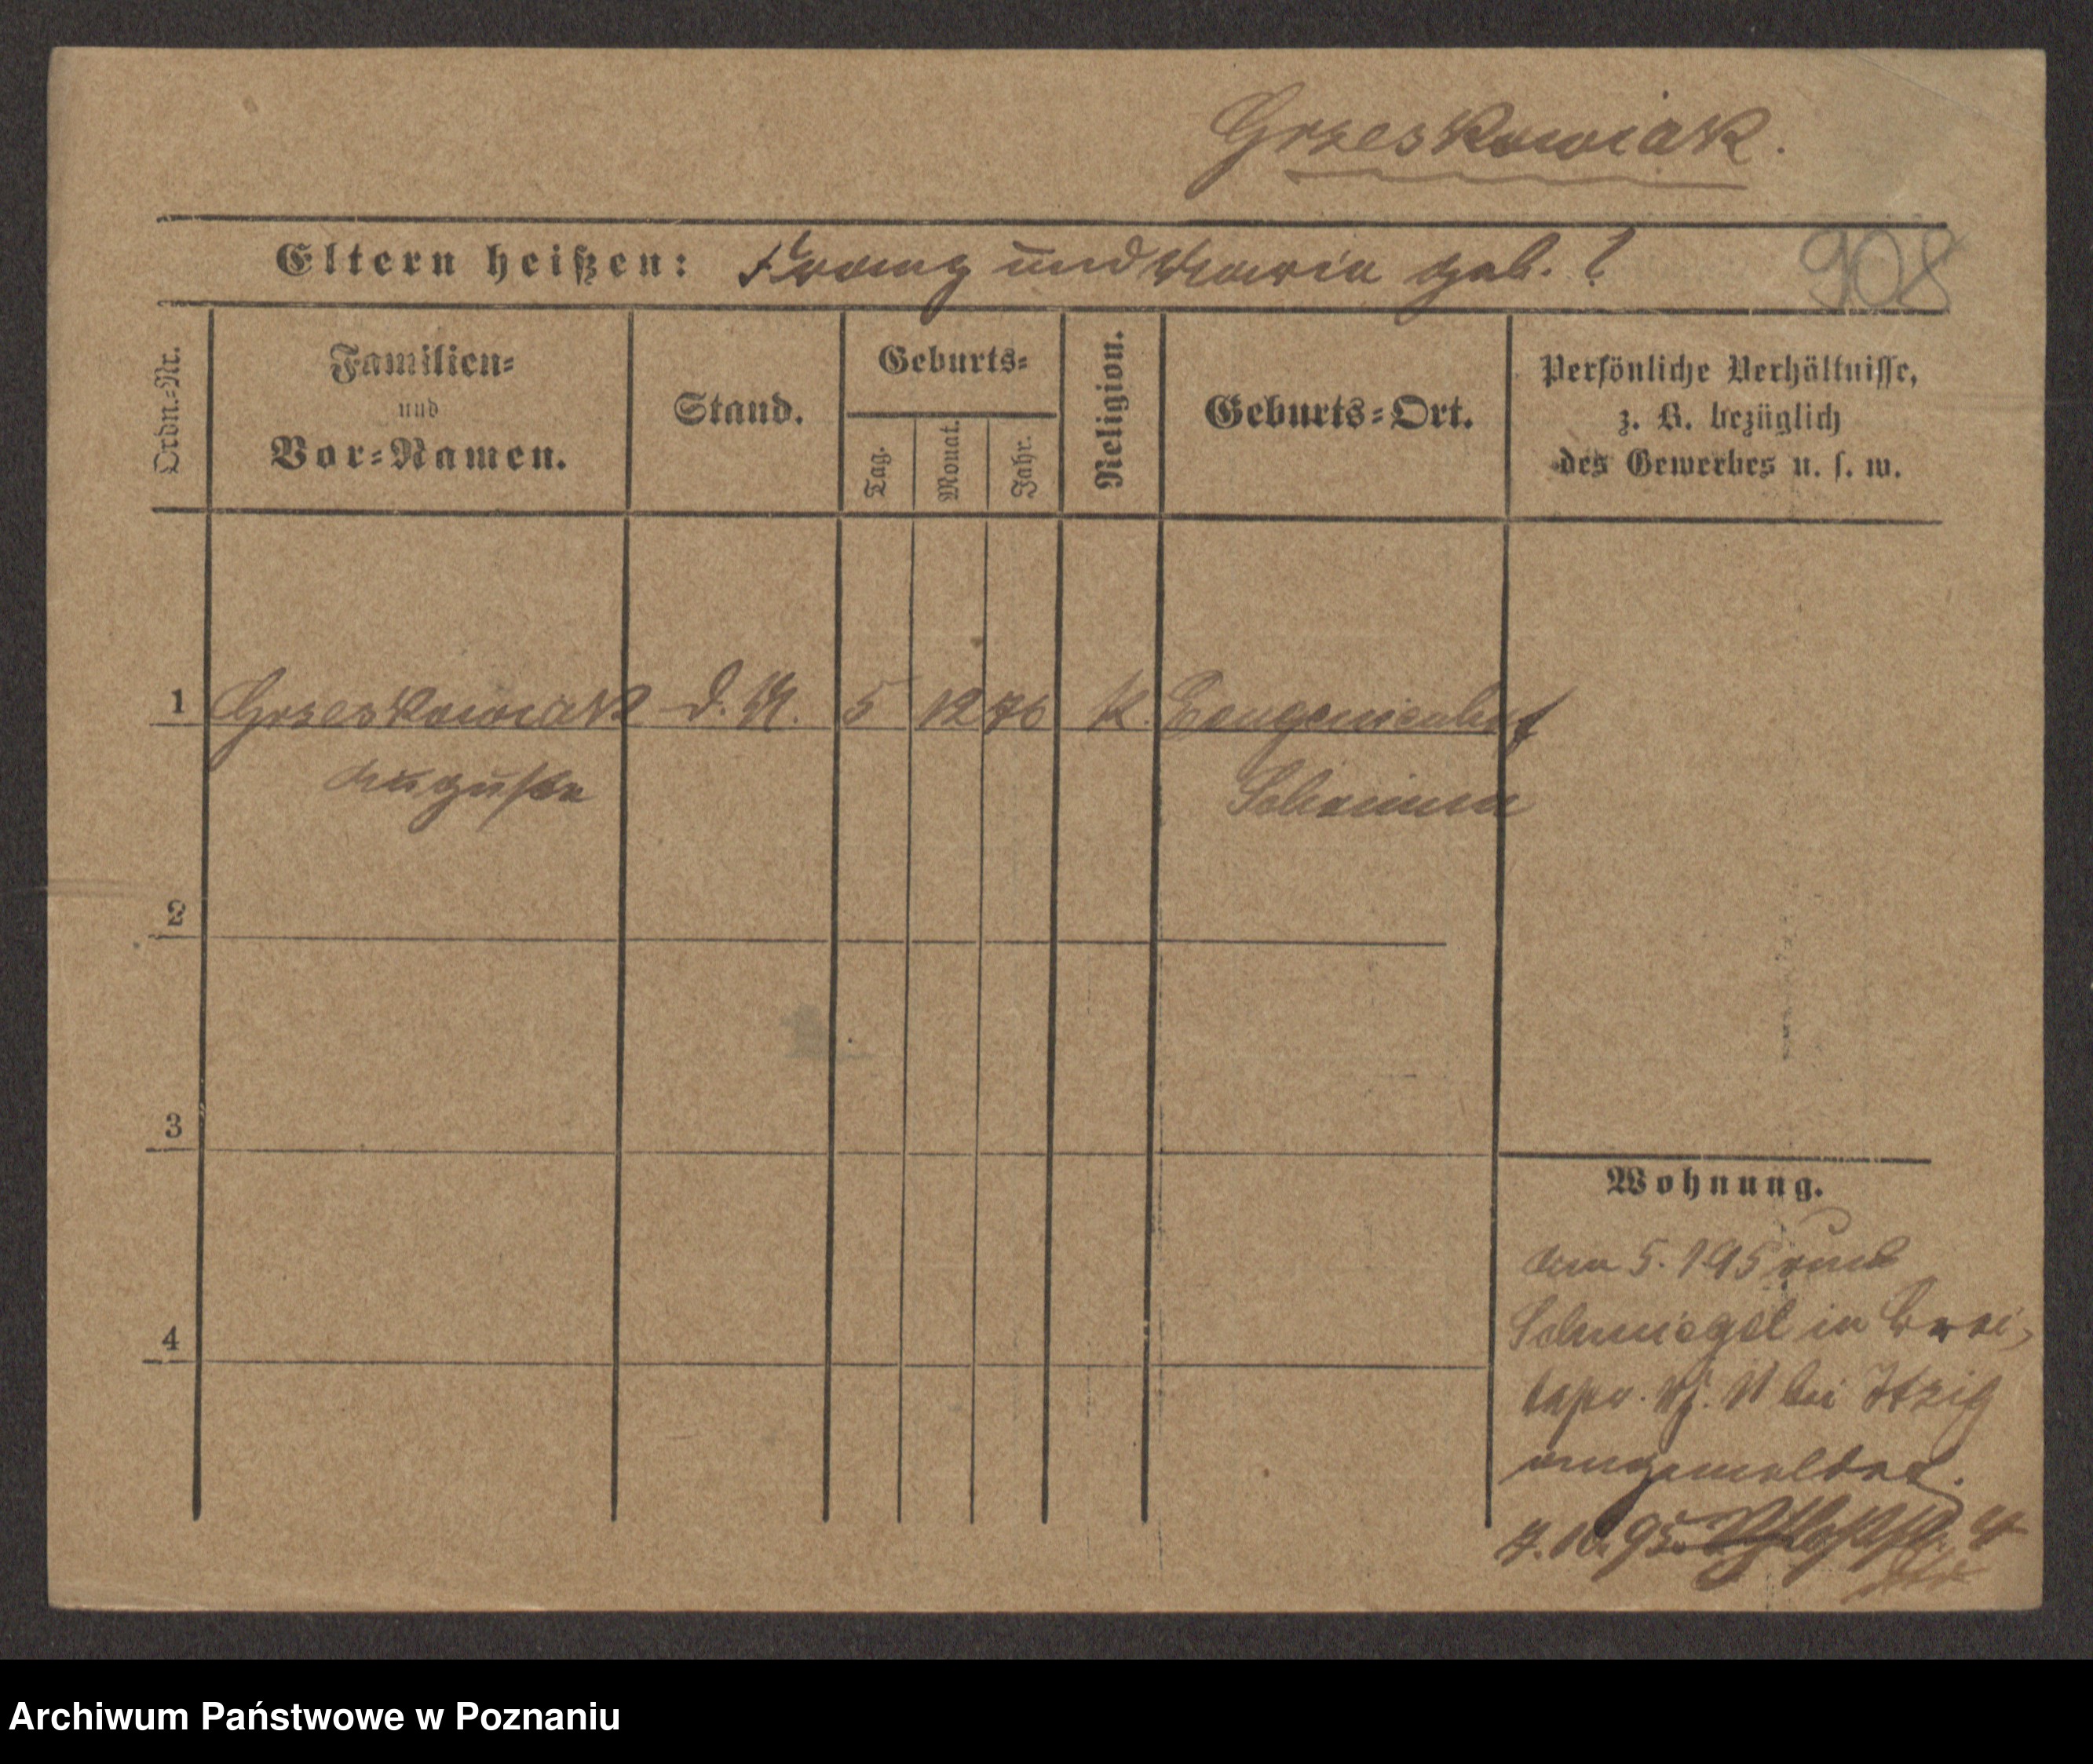 Grzeskowiak.
Eltern heißen: Franz und Maria geb. ?
908
Ordn.-Nr.
Familien-
und
Vor-Namen.
Stand.
Geburts-
Tag.
Monat.
Jahr.
Religion.
Geburts-Ort.
Persönliche Verhältnisse,
z. B. bezüglich
des Gewerbes u. s. w.
1 Grzeskowiak d. M. 5 12 76 K. Eougenienhof
Auguste
2
3
4
Wohnung.
am 5. 1 95 aus
Schmiegel in
11 bei Itzig
angemeldet.
10. 95
Archiwum Państwowe w Poznaniu